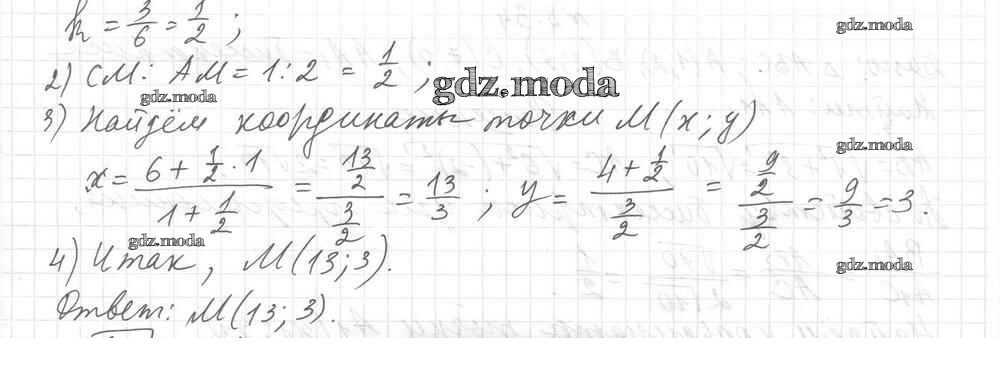 k = 3/6 = 1/2 ;
gdz.moda
2) CM : AM = 1 : 2 = 1/2 ;
gdz.moda
gdz.moda
3) Найдём координаты точки M(x; y)
gdz.moda
x = (6 + 1/2 · 1)/(1 + 1/2) = (13/2)/(3/2) = 13/3 ; y = (4 + 1/2)/(3/2) = (9/2)/(3/2) = 9/3 = 3.
gdz.moda
4) Итак, M(13; 3).
gdz.moda
Ответ: M(13; 3).